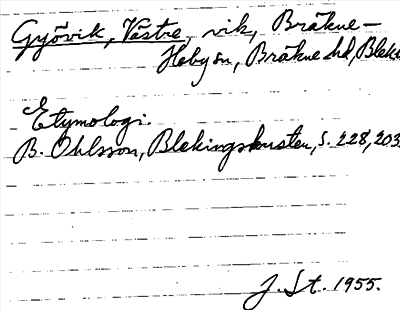 Gyövik, Västre, vik, Bräkne-
Hoby sn, Bräkne hd, Blek
Etymologi.
B. Ohlsson, Blekingskusten, s. 228, 203.
J. St. 1955.